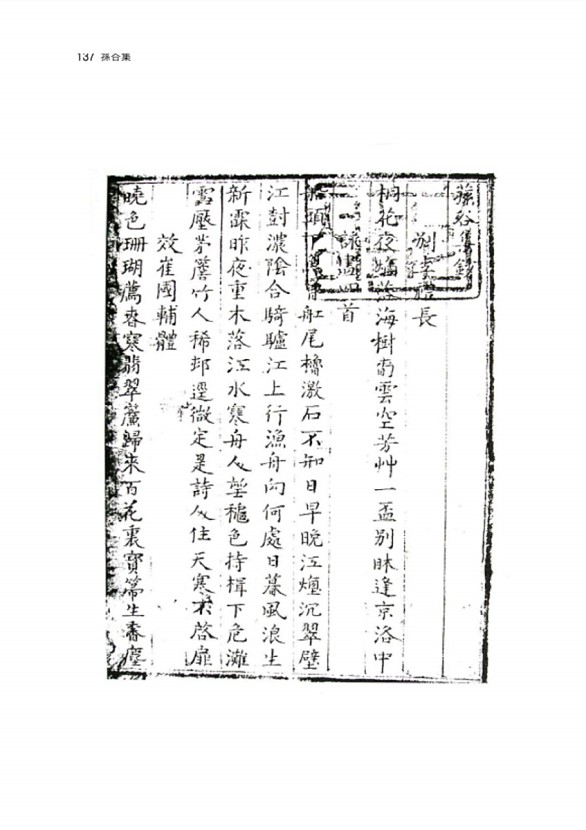 137 孫合集
孫谷集錄
別李禮長
桐花夜煙落海樹南雲空芳艸一盃別眛逢京洛中
詠畫四首
船頭 舡尾櫓激石不知日早晩江煙沉翠壁
江對濃陰合騎驢江上行漁舟向何處日暮風浪生
新霖昨夜重木落江水寒舟人望穐色持楫下危灘
雪壓茅簷竹人稀邨逕微定是詩人住天寒不啓扉
效崔國輔體
曉色珊瑚薦春寒翡翠簾歸來百花裏寶箒生香塵